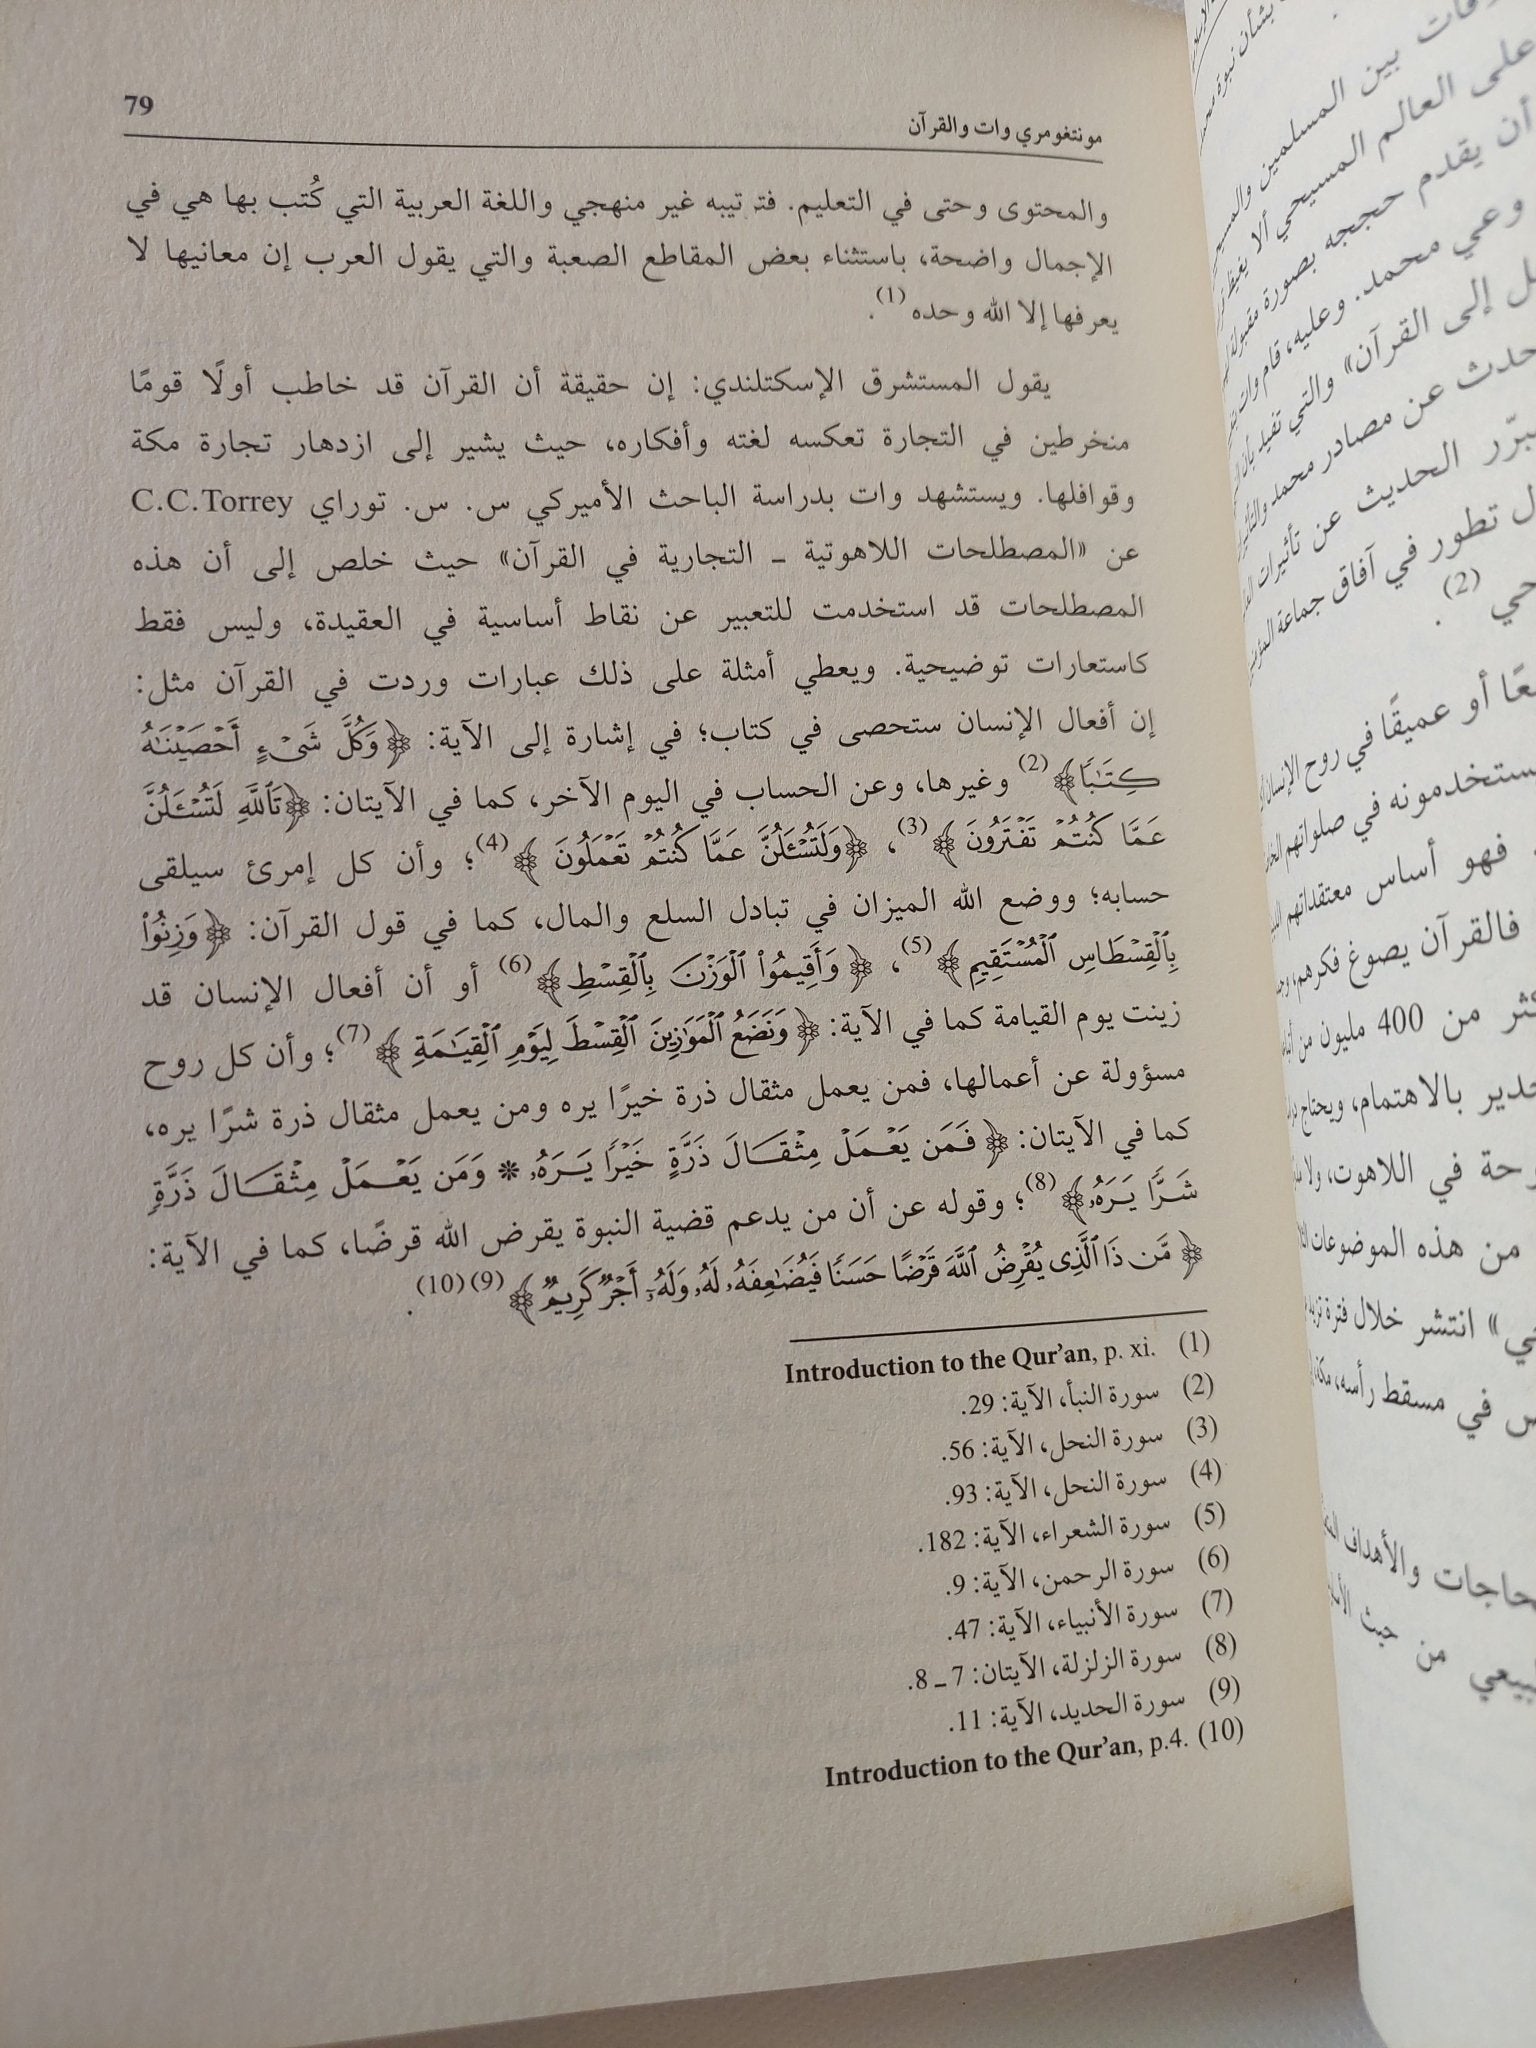 مونتغومري وات والقرآن 79
والمحتوى وحتى في التعليم. فترتيبه غير منهجي واللغة العربية التي كُتب بها هي في
الإجمال واضحة، باستثناء بعض المقاطع الصعبة والتي يقول العرب إن معانيها لا
يعرفها إلا الله وحده(1).
يقول المستشرق الإسكتلندي: إن حقيقة أن القرآن قد خاطب أولًا قومًا
منخرطين في التجارة تعكسه لغته وأفكاره، حيث يشير إلى ازدهار تجارة مكة
وقوافلها. ويستشهد وات بدراسة الباحث الأميركي س. س. توراي C.C.Torrey
عن «المصطلحات اللاهوتية ـ التجارية في القرآن» حيث خلص إلى أن هذه
المصطلحات قد استخدمت للتعبير عن نقاط أساسية في العقيدة، وليس فقط
كاستعارات توضيحية. ويعطي أمثلة على ذلك عبارات وردت في القرآن مثل:
إن أفعال الإنسان ستحصى في كتاب؛ في إشارة إلى الآية: ﴿وَكُلَّ شَىْءٍ أَحْصَيْنَٰهُ
كِتَٰبًا﴾(2) وغيرها، وعن الحساب في اليوم الآخر، كما في الآيتان: ﴿تَٱللَّهِ لَتُسْـَٔلُنَّ
عَمَّا كُنتُمْ تَفْتَرُونَ﴾(3)، ﴿وَلَتُسْـَٔلُنَّ عَمَّا كُنتُمْ تَعْمَلُونَ﴾(4)؛ وأن كل إمرئ سيلقى
حسابه؛ ووضع الله الميزان في تبادل السلع والمال، كما في قول القرآن: ﴿وَزِنُوا۟
بِٱلْقِسْطَاسِ ٱلْمُسْتَقِيمِ﴾(5)، ﴿وَأَقِيمُوا۟ ٱلْوَزْنَ بِٱلْقِسْطِ﴾(6) أو أن أفعال الإنسان قد
زينت يوم القيامة كما في الآية: ﴿وَنَضَعُ ٱلْمَوَٰزِينَ ٱلْقِسْطَ لِيَوْمِ ٱلْقِيَٰمَةِ﴾(7)؛ وأن كل روح
مسؤولة عن أعمالها، فمن يعمل مثقال ذرة خيرًا يره ومن يعمل مثقال ذرة شرًا يره،
كما في الآيتان: ﴿فَمَن يَعْمَلْ مِثْقَالَ ذَرَّةٍ خَيْرًا يَرَهُۥ * وَمَن يَعْمَلْ مِثْقَالَ ذَرَّةٍ
شَرًّا يَرَهُۥ﴾(8)؛ وقوله عن أن من يدعم قضية النبوة يقرض الله قرضًا، كما في الآية:
﴿مَّن ذَا ٱلَّذِى يُقْرِضُ ٱللَّهَ قَرْضًا حَسَنًا فَيُضَٰعِفَهُۥ لَهُۥ وَلَهُۥٓ أَجْرٌ كَرِيمٌ﴾(9)(10).
(1) Introduction to the Qur’an, p. xi.
(2) سورة النبأ، الآية: 29.
(3) سورة النحل، الآية: 56.
(4) سورة النحل، الآية: 93.
(5) سورة الشعراء، الآية: 182.
(6) سورة الرحمن، الآية: 9.
(7) سورة الأنبياء، الآية: 47.
(8) سورة الزلزلة، الآيتان: 7 ـ 8.
(9) سورة الحديد، الآية: 11.
(10) Introduction to the Qur’an, p.4.
بشأن نبوة
بين المسلمين
على العالم المسيحي ألا
أن يقدم حججه بصورة مقبولة
وعي محمد. وعليه، قام وات
إلى القرآن» والتي تفيد بأن
عن مصادر محمد
الحديث عن تأثيرات
تطور في آفاق جماعة
(2).
أو عميقًا في روح الإنسان
في صلواتهم
فهو أساس معتقداتهم
فالقرآن يصوغ فكرهم،
من 400 مليون من
بالاهتمام، ويحتاج
في اللاهوت، ولا
من هذه الموضوعات
انتشر خلال فترة
في مسقط رأسه، مكة،
والأهداف
من حيث